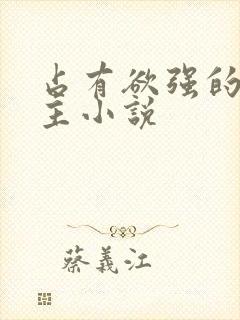 占有欲强的
主小说
蔡義江